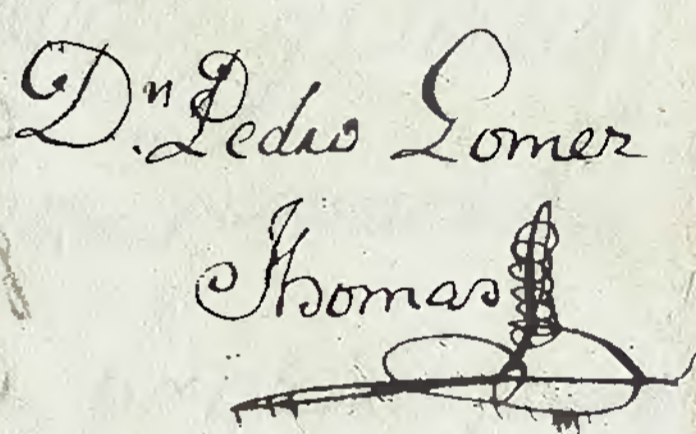 Dn. Pedro Gomez
Thomas